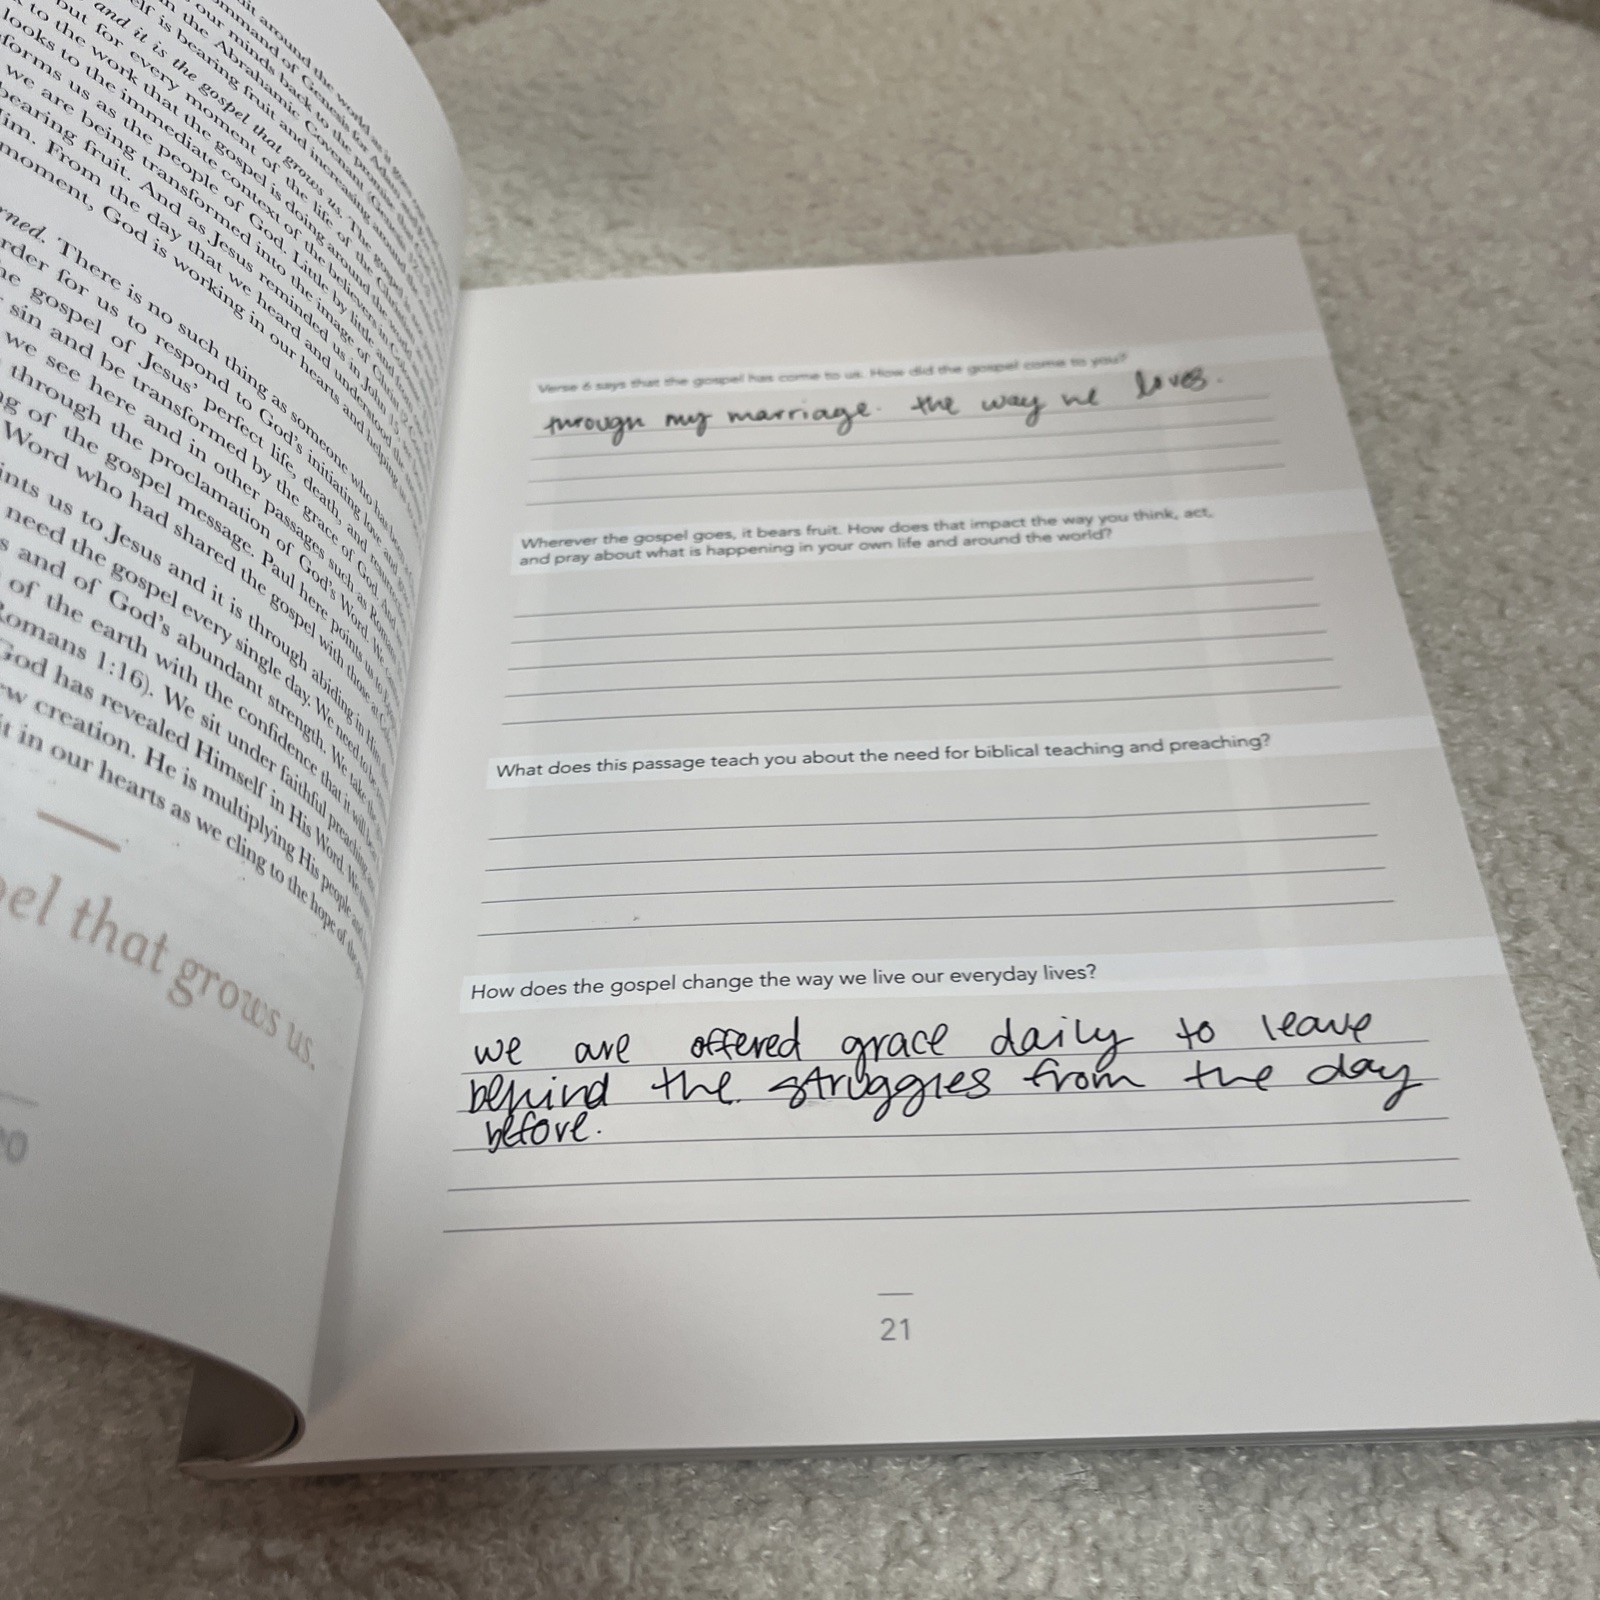 and it is the gospel that grows us. The gospel is
to the work that the gospel is doing around the world
but for every moment of the life of the
looks to the immediate context of the believers in
forms us as the people of God. Little by little and
we are being transformed into the image of Christ
bearing fruit. And as Jesus reminded us in John 15,
Him. From the day that we heard and understood the
moment, God is working in our hearts and helping us
There is no such thing as someone who has been
for us to respond to God's initiating love and
gospel of Jesus' perfect life, death, and
sin and be transformed by the grace of God. And
we see here and in other passages such as Romans
through the proclamation of God's Word. We
of the gospel message. Paul here points us to
Word who had shared the gospel with those at
us to Jesus and it is through abiding in Him
need the gospel every single day. We need to be
and of God's abundant strength. We take the
of the earth with the confidence that it will
Romans 1:16). We sit under faithful preaching
God has revealed Himself in His Word. We
creation. He is multiplying His people and
in our hearts as we cling to the hope of the
that grows us.
Verse 6 says that the gospel has come to us. How did the gospel come to you?
through my marriage. the way he loves.
Wherever the gospel goes, it bears fruit. How does that impact the way you think, act,
and pray about what is happening in your own life and around the world?
What does this passage teach you about the need for biblical teaching and preaching?
How does the gospel change the way we live our everyday lives?
we are offered grace daily to leave
behind the struggles from the day
before.
21